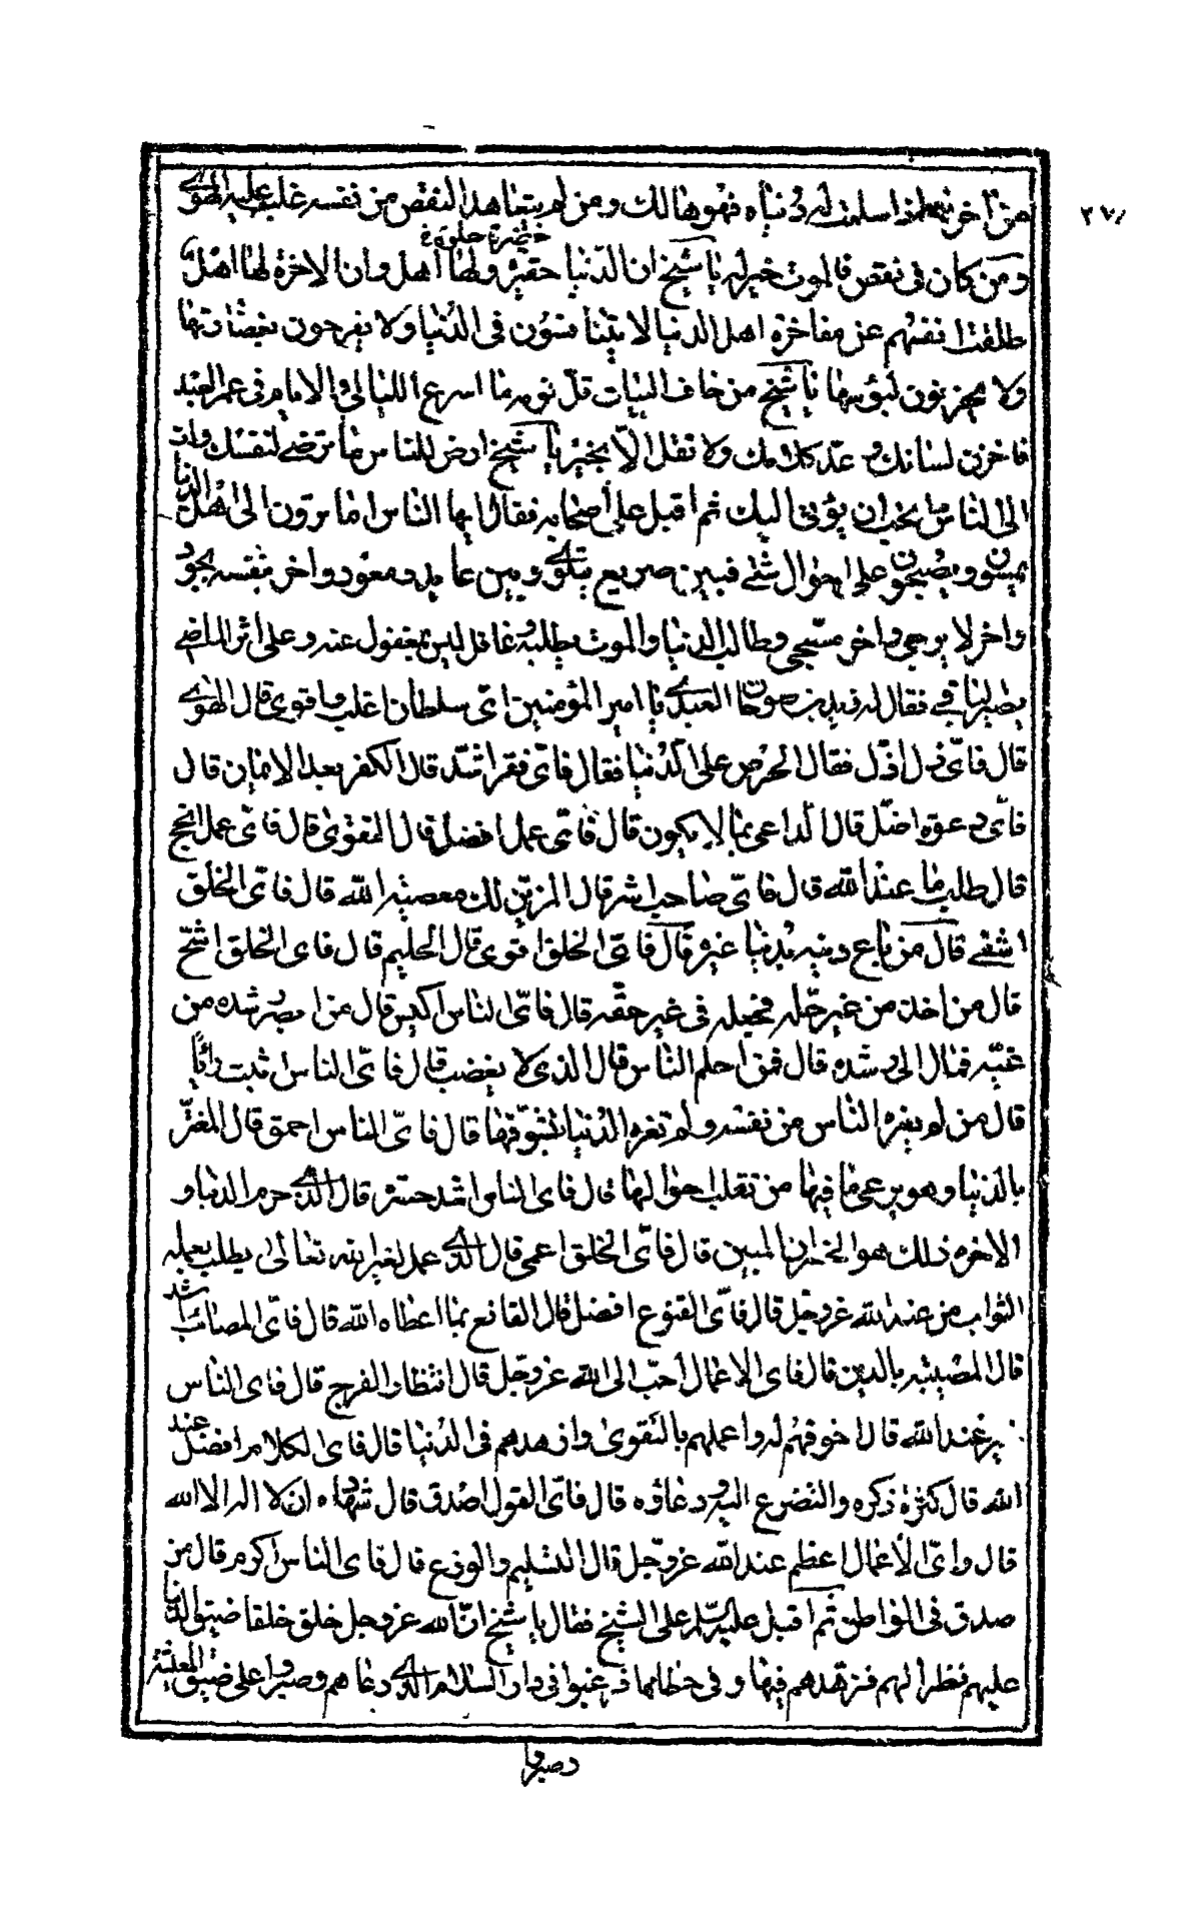 ٢٧٨
من اخرته اذا سلمت له دنياه فهو هالك ومن لم يتعاهد النقص من نفسه غلب عليه الهوى
خضرة حلوة خ
ومن كان في نقص فالموت خير له يا شيخ ان الدنيا حقيرة ولها اهل وان الاخرة لها اهل
ظلفت انفسهم عن مفاخرة اهل الدنيا لا يتنافسون في الدنيا ولا يفرحون بغضارتها
ولا يحزنون لبؤسها يا شيخ من خاف البيات قل نومه ما اسرع الليالي والايام في عمر العبد
فاخزن لسانك وعد كلامك ولا تقل الا بخير يا شيخ ارض للناس ما ترضى لنفسك وات
الى الناس ما تحب ان يؤتى اليك ثم اقبل على اصحابه فقال ايها الناس اما ترون الى اهل الدنيا
يمسون ويصبحون على احوال شتى فبين صريع يتلوى وبين عائد ومعود واخر بنفسه يجود
واخر لا يرجى واخر مسجى وطالب الدنيا والموت يطلبه وغافل ليس بمغفول عنه وعلى اثر الماضي
يصير الباقي فقال له زيد بن صوحان العبدي يا امير المؤمنين اي سلطان اغلب واقوى قال الهوى
قال فاي ذل اذل فقال الحرص على الدنيا فقال فاي فقر اشد قال الكفر بعد الايمان قال
فاي دعوة اضل قال الداعي بما لا يكون قال فاي عمل افضل قال التقوى قال فاي عمل انجح
قال طلب ما عند الله قال فاي صاحب شر قال المزين لك معصية الله قال فاي الخلق
اشقى قال من باع دينه بدنيا غيره قال فاي الخلق اقوى قال الحليم قال فاي الخلق اشح
قال من اخذ من غير حله فجعله في غير حقه قال فاي الناس اكيس قال من ابصر رشده من
غيه فمال الى رشده قال فمن احلم الناس قال الذي لا يغضب قال فاي الناس اثبت رأيا
قال من لم يغره الناس من نفسه ولم تغره الدنيا بتشوفها قال فاي الناس احمق قال المغتر
بالدنيا وهو يرى ما فيها من تقلب احوالها قال فاي الناس اشد حسرة قال الذي حرم الدنيا و
الاخرة ذلك هو الخسران المبين قال فاي الخلق اعمى قال الذي عمل لغير الله تعالى يطلب بعمله
الثواب من عند الله عز وجل قال فاي القنوع افضل قال القانع بما اعطاه الله قال فاي المصائب اشد
قال المصيبة بالدين قال فاي الاعمال احب الى الله عز وجل قال انتظار الفرج قال فاي الناس
خير عند الله قال اخوفهم له واعملهم بالتقوى وازهدهم في الدنيا قال فاي الكلام افضل عند
الله قال كثرة ذكره والتضرع اليه ودعاؤه قال فاي القول اصدق قال شهادة ان لا اله الا الله
قال واي الاعمال اعظم عند الله عز وجل قال التسليم والورع قال فاي الناس اكرم قال من
صدق في المواطن ثم اقبل عليه السلام على الشيخ فقال يا شيخ ان الله عز وجل خلق خلقا ضيق الدنيا
عليهم نظرا لهم فزهدهم فيها وفي حطامها فرغبوا في دار السلام الذي دعاهم وصبروا على ضيق المعيشة
وصبروا